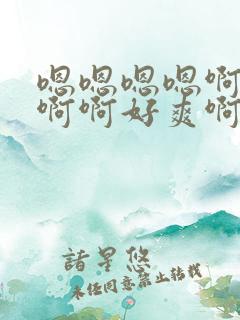 嗯嗯嗯嗯啊
啊啊好爽啊
諸星悠
未经同意禁止转载